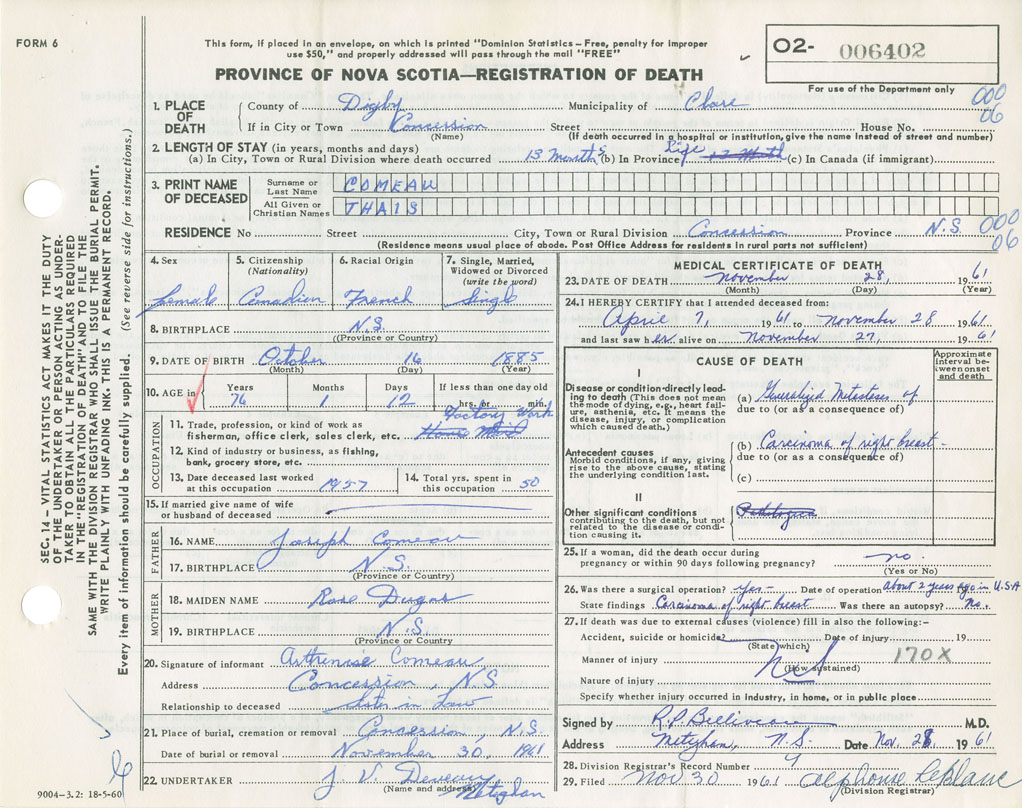 FORM 6
This form, if placed in an envelope, on which is printed "Dominion Statistics – Free, penalty for improper
use $50," and properly addressed will pass through the mail "FREE"
PROVINCE OF NOVA SCOTIA—REGISTRATION OF DEATH
O2- 006402
For use of the Department only
000
06
1. PLACE OF DEATH
County of Digby Municipality of Clare
If in City or Town Concession Street House No.
(Name) (If death occurred in a hospital or institution, give the name instead of street and number)
2. LENGTH OF STAY (in years, months and days)
(a) In City, Town or Rural Division where death occurred 13 Months (b) In Province Life (c) In Canada (if immigrant)
3. PRINT NAME OF DECEASED
Surname or Last Name COMEAU
All Given or Christian Names THAIS
RESIDENCE No Street City, Town or Rural Division Concession Province N.S.
000
06
(Residence means usual place of abode. Post Office Address for residents in rural parts not sufficient)
4. Sex
Female
5. Citizenship (Nationality)
Canadien
6. Racial Origin
French
7. Single, Married, Widowed or Divorced (write the word)
Single
8. BIRTHPLACE N.S.
(Province or Country)
9. DATE OF BIRTH October 16 1885
(Month) (Day) (Year)
10. AGE in Years Months Days If less than one day old
76 1 12 hrs. or min.
OCCUPATION
11. Trade, profession, or kind of work as
fisherman, office clerk, sales clerk, etc. Factory Work
12. Kind of industry or business, as fishing,
bank, grocery store, etc.
13. Date deceased last worked
at this occupation 1957
14. Total yrs. spent in
this occupation 50
15. If married give name of wife
or husband of deceased
FATHER
16. NAME Joseph Comeau
17. BIRTHPLACE N.S.
(Province or Country)
MOTHER
18. MAIDEN NAME Rose Dugas
19. BIRTHPLACE N.S.
(Province or Country)
20. Signature of informant Arthenise Comeau
Address Concession, N.S.
Relationship to deceased sister in Law
21. Place of burial, cremation or removal Concession, N.S.
Date of burial or removal November 30, 1961
22. UNDERTAKER J V Deveau
(Name and address) Meteghan
MEDICAL CERTIFICATE OF DEATH
23. DATE OF DEATH November 28, 1961
(Month) (Day) (Year)
24. I HEREBY CERTIFY that I attended deceased from:
April 7, 1961 to November 28 1961
and last saw her alive on November 27, 1961
CAUSE OF DEATH
Approximate interval between onset and death
I
Disease or condition directly leading to death (This does not mean
the mode of dying, e.g., heart failure, asthenia, etc. It means the
disease, injury, or complication
which caused death.)
(a) Generalized Metastases of
due to (or as a consequence of)
Antecedent causes
Morbid conditions, if any, giving
rise to the above cause, stating
the underlying condition last.
(b) Carcinoma of right breast -
due to (or as a consequence of)
(c)
II
Other significant conditions
contributing to the death, but not
related to the disease or condition causing it.
25. If a woman, did the death occur during
pregnancy or within 90 days following pregnancy? no.
(Yes or No)
26. Was there a surgical operation? yes- Date of operation about 2 years ago in U.S.A
State findings Carcinoma of right breast Was there an autopsy? No.
27. If death was due to external causes (violence) fill in also the following:-
Accident, suicide or homicide? Date of injury 19
(State which)
Manner of injury NS 170X
(How sustained)
Nature of injury
Specify whether injury occurred in industry, in home, or in public place
Signed by R.P. Belliveau M.D.
Address Meteghan, N.S. Date Nov. 28 1961
28. Division Registrar's Record Number 9
29. Filed Nov 30 1961 Alphonse LeBlanc
(Division Registrar)
SEC. 14 – VITAL STATISTICS ACT MAKES IT THE DUTY
OF THE UNDERTAKER OR PERSON ACTING AS UNDERTAKER TO OBTAIN ALL THE PARTICULARS REQUIRED
IN THE "REGISTRATION OF DEATH" AND TO FILE THE
SAME WITH THE DIVISION REGISTRAR WHO SHALL ISSUE THE BURIAL PERMIT.
WRITE PLAINLY WITH UNFADING INK. THIS IS A PERMANENT RECORD.
Every item of information should be carefully supplied. (See reverse side for instructions.)
9004–3.2: 18-5-60